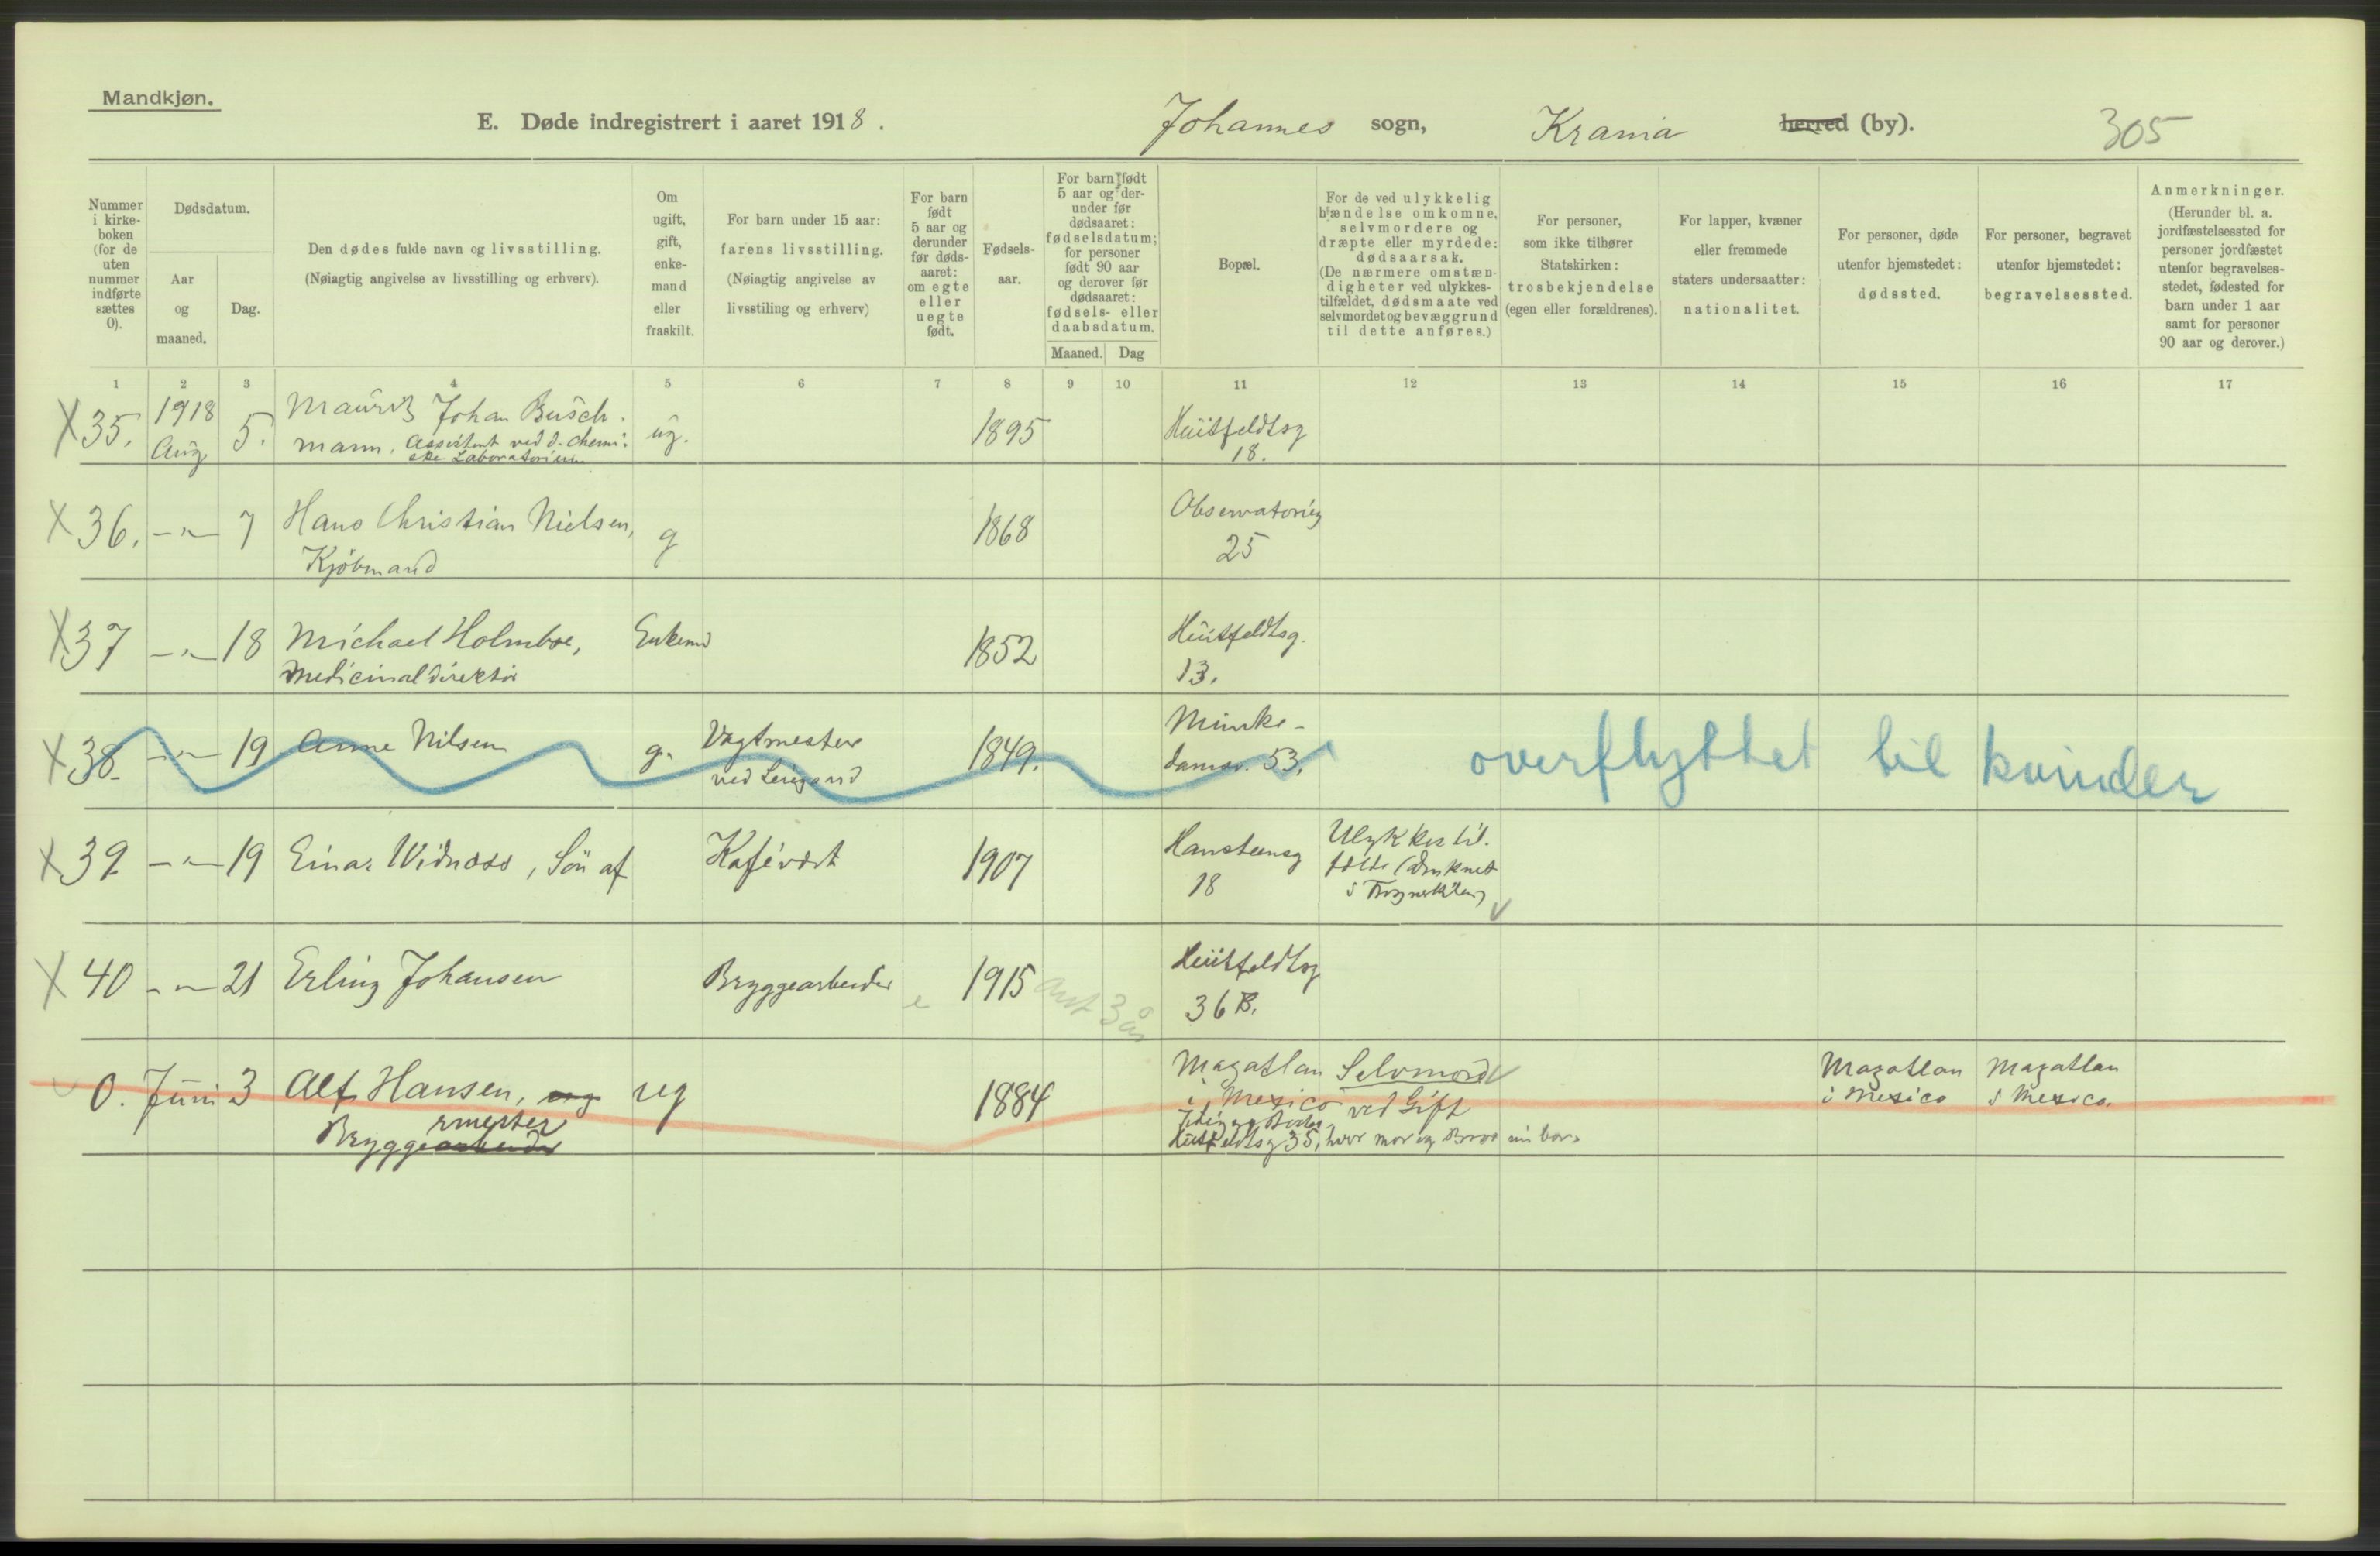 Mandkjøn.
E. Døde indregistrert i aaret 1918. Johannes sogn, Krania herred (by). 305
Nummer i kirke- boken (for de uten nummer indførte sættes 0).
Dødsdatum.
Aar og maaned.
Dag.
Den dødes fulde navn og livsstilling.
(Nøiagtig angivelse av livsstilling og erhverv).
Om ugift, gift, enke- mand eller fraskilt.
For barn under 15 aar:
farens livsstilling.
(Nøiagtig angivelse av
livsstiling og erhverv)
For barn født 5 aar og derunder før døds- aaret: om egte eller uegte født.
Fødsels- aar.
For barn født 5 aar og der- under før dødsaaret: fødselsdatum; for personer født 90 aar og derover før dødsaaret: fødsels- eller daabsdatum.
Maaned. Dag
Bopæl.
For de ved ulykkelig hændelse omkomne, selvmordere og dræpte eller myrdede: dødsaarsak. (De nærmere omstæn- digheter ved ulykkes- tilfældet, dødsmaate ved selvmordet og bevæggrund til dette anføres.)
For personer, som ikke tilhører Statskirken: trosbekjendelse (egen eller forældrenes).
For lapper, kvæner eller fremmede staters undersaatter: nationalitet.
For personer, døde utenfor hjemstedet: dødssted.
For personer, begravet utenfor hjemstedet: begravelsessted.
Anmerkninger. (Herunder bl. a. jordfæstelsessted for personer jordfæstet utenfor begravelses- stedet, fødested for barn under 1 aar samt for personer 90 aar og derover.)
1 2 3 4 5 6 7 8 9 10 11 12 13 14 15 16 17
X 35. 1918 Aug 5. Mauritz Johan Busch-
mann. Assistent ved d. chemi-
ske Laboratorium ug. 1895 Huitfeldtsg
18.
X 36. -"- 7 Hans Christian Nielsen, g 1868 Observatorieg
Kjöbmand 25
X 37 -"- 18 Michael Holmboe, Enkemd 1852 Huitfeldtsg.
Medicinaldirektör 13.
X 38. -"- 19 Anne Nilsen g. Vagtmester 1849. Munke-
ved damsv. 53. overflyttet til kvinder
X 39 -"- 19 Einar Widnæss, Sön af Kafévært 1907 Hansteensg Ulykkestil-
18 fælde (druknet
i
X 40 -"- 21 Erling Johansen Bryggearbeider e 1915 ant 3 år Huitfeldtsg
36 B.
0. Juni 3 Alf Hansen, ug 1884 Mazatlan Selvmord Mazatlan Mazatlan
rmester i Mexico ved Gift i Mexico i Mexico.
Bryggearbeider
Huitfeldtsg 35, hvor mor og Bror nu bor.